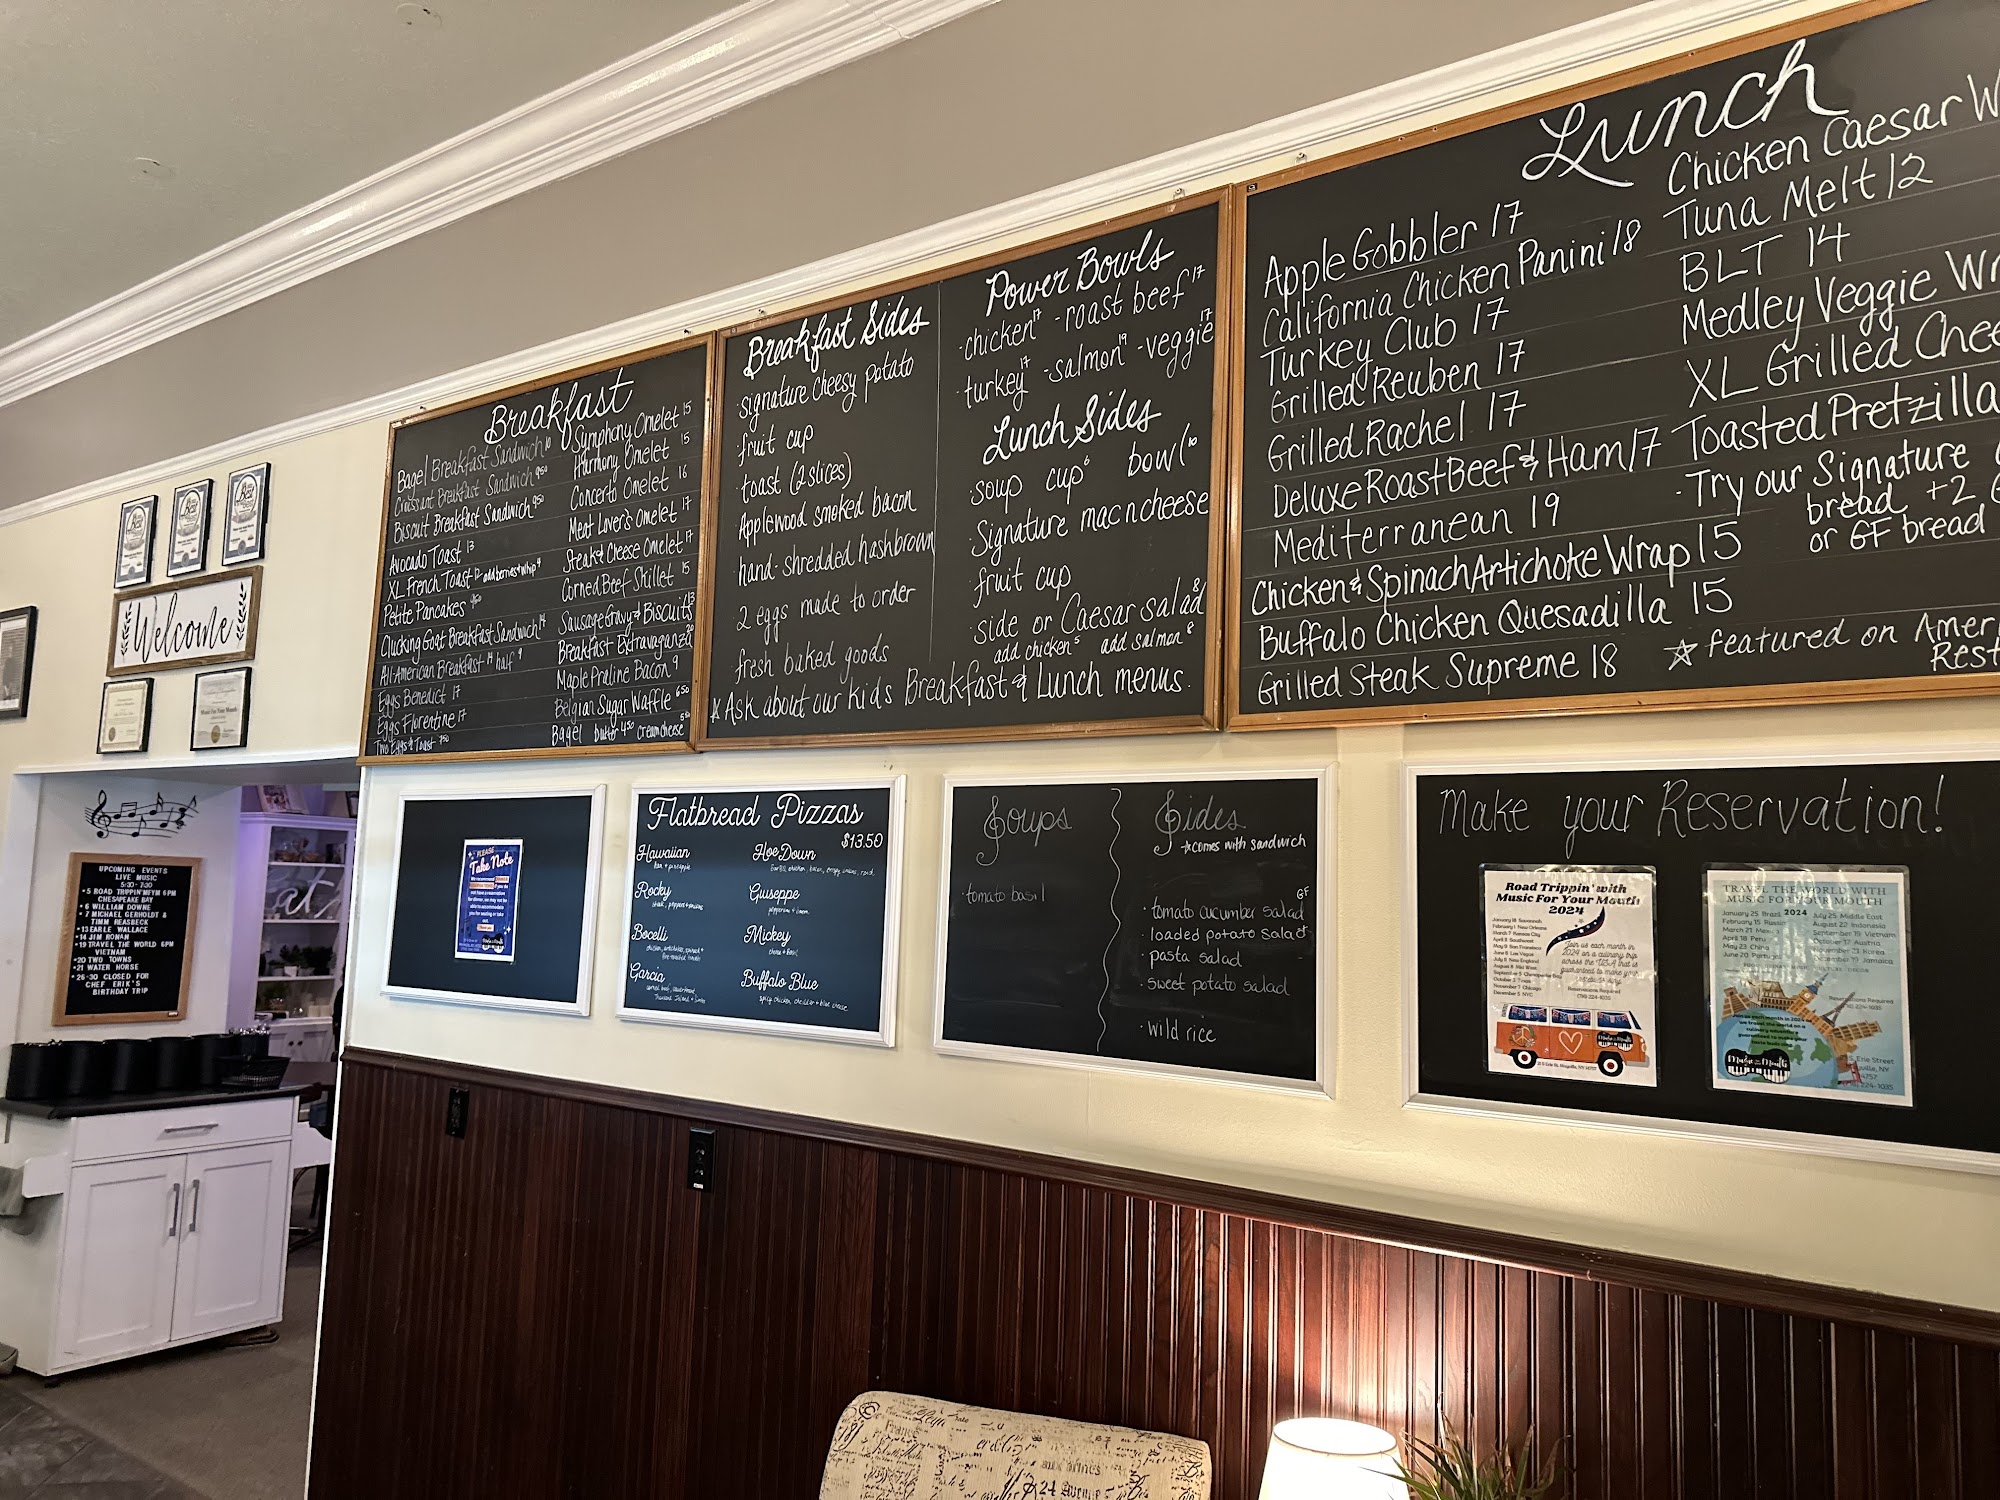 Breakfast
Bagel Breakfast Sandwich 10
Croissant Breakfast Sandwich 9.50
Biscuit Breakfast Sandwich 9.50
Avocado Toast 13
XL French Toast 12 add berries & whip 4
Petite Pancakes 9.50
Clucking Goat Breakfast Sandwich 14
All-American Breakfast 14 half 9
Eggs Benedict 17
Eggs Florentine 17
Two Eggs & Toast 7.50
Symphony Omelet 15
Harmony Omelet 15
Concerto Omelet 16
Meat Lover's Omelet 17
Steak & Cheese Omelet 17
Corned Beef Skillet 15
Sausage Gravy & Biscuits 13
Breakfast Extravaganza 20
Maple Praline Bacon 9
Belgian Sugar Waffle 6.50
Bagel butter 4.50 creamcheese 5.50
Breakfast Sides
·signature cheesy potato
·fruit cup
·toast (2 slices)
·Applewood smoked bacon
·hand-shredded hashbrown
·2 eggs made to order
·fresh baked goods
☆ Ask about our kids Breakfast & Lunch menus.
Power Bowls
·chicken 17 -roast beef 17
·turkey 17 -salmon 19 -veggie 17
Lunch Sides
·soup cup 6 bowl 10
·Signature mac n cheese
·fruit cup
·side or Caesar salad 8
add chicken 5 add salmon 8
Lunch
Apple Gobbler 17
California Chicken Panini 18
Turkey Club 17
Grilled Reuben 17
Grilled Rachel 17
Deluxe Roast Beef & Ham 17
Mediterranean 19
Chicken & Spinach Artichoke Wrap 15
Buffalo Chicken Quesadilla 15
Grilled Steak Supreme 18
Chicken Caesar W
Tuna Melt 12
BLT 14
Medley Veggie Wr
XL Grilled Chee
Toasted Pretzilla
·Try our Signature
bread +2
or GF bread
☆ featured on Ameri
Rest
Welcome
UPCOMING EVENTS
LIVE MUSIC
5:30-7:30
•5 ROAD TRIPPIN'MFYM 6PM
CHESAPEAKE BAY
•6 WILLIAM DOWNE
•7 MICHAEL GERHOLDT &
TIMM REASBECK
•13 EARLE WALLACE
•14 JIM RONAN
•19 TRAVEL THE WORLD 6PM
VIETNAM
•20 TWO TOWNS
•21 WATER HORSE
•26-30 CLOSED FOR
CHEF ERIK'S
BIRTHDAY TRIP
PLEASE
Take Note
Flatbread Pizzas
$13.50
Hawaiian
ham & pineapple
Rocky
Bocelli
Garcia
Hoe Down
Giuseppe
Mickey
Buffalo Blue
spicy chicken, cheddar & blue cheese
Soups
·tomato basil
Sides
☆comes with sandwich
GF
·tomato cucumber salad
·loaded potato salad
·pasta salad
·sweet potato salad
·wild rice
Make your Reservation!
Road Trippin' with
Music For Your Mouth
2024
Join us each month in
2024 on a culinary trip
across the USA that is
guaranteed to make your
Reservations Required
(716) 224-1035
TRAVEL THE WORLD WITH
MUSIC FOR YOUR MOUTH
2024
January 25 Brazil
April 18 Peru
June 20 Portugal
July 25 Middle East
August 22 Indonesia
September 19 Vietnam
October 17 Austria
December 19 Jamaica
Reservations Required